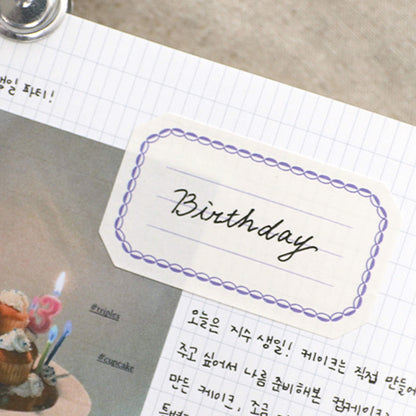 생일 파티!
Birthday
#triples
#cupcake
오늘은 지수 생일! 케이크는 직접 만들어
주고 싶어서 나름 준비해본 컵케이크
만든 케이크,